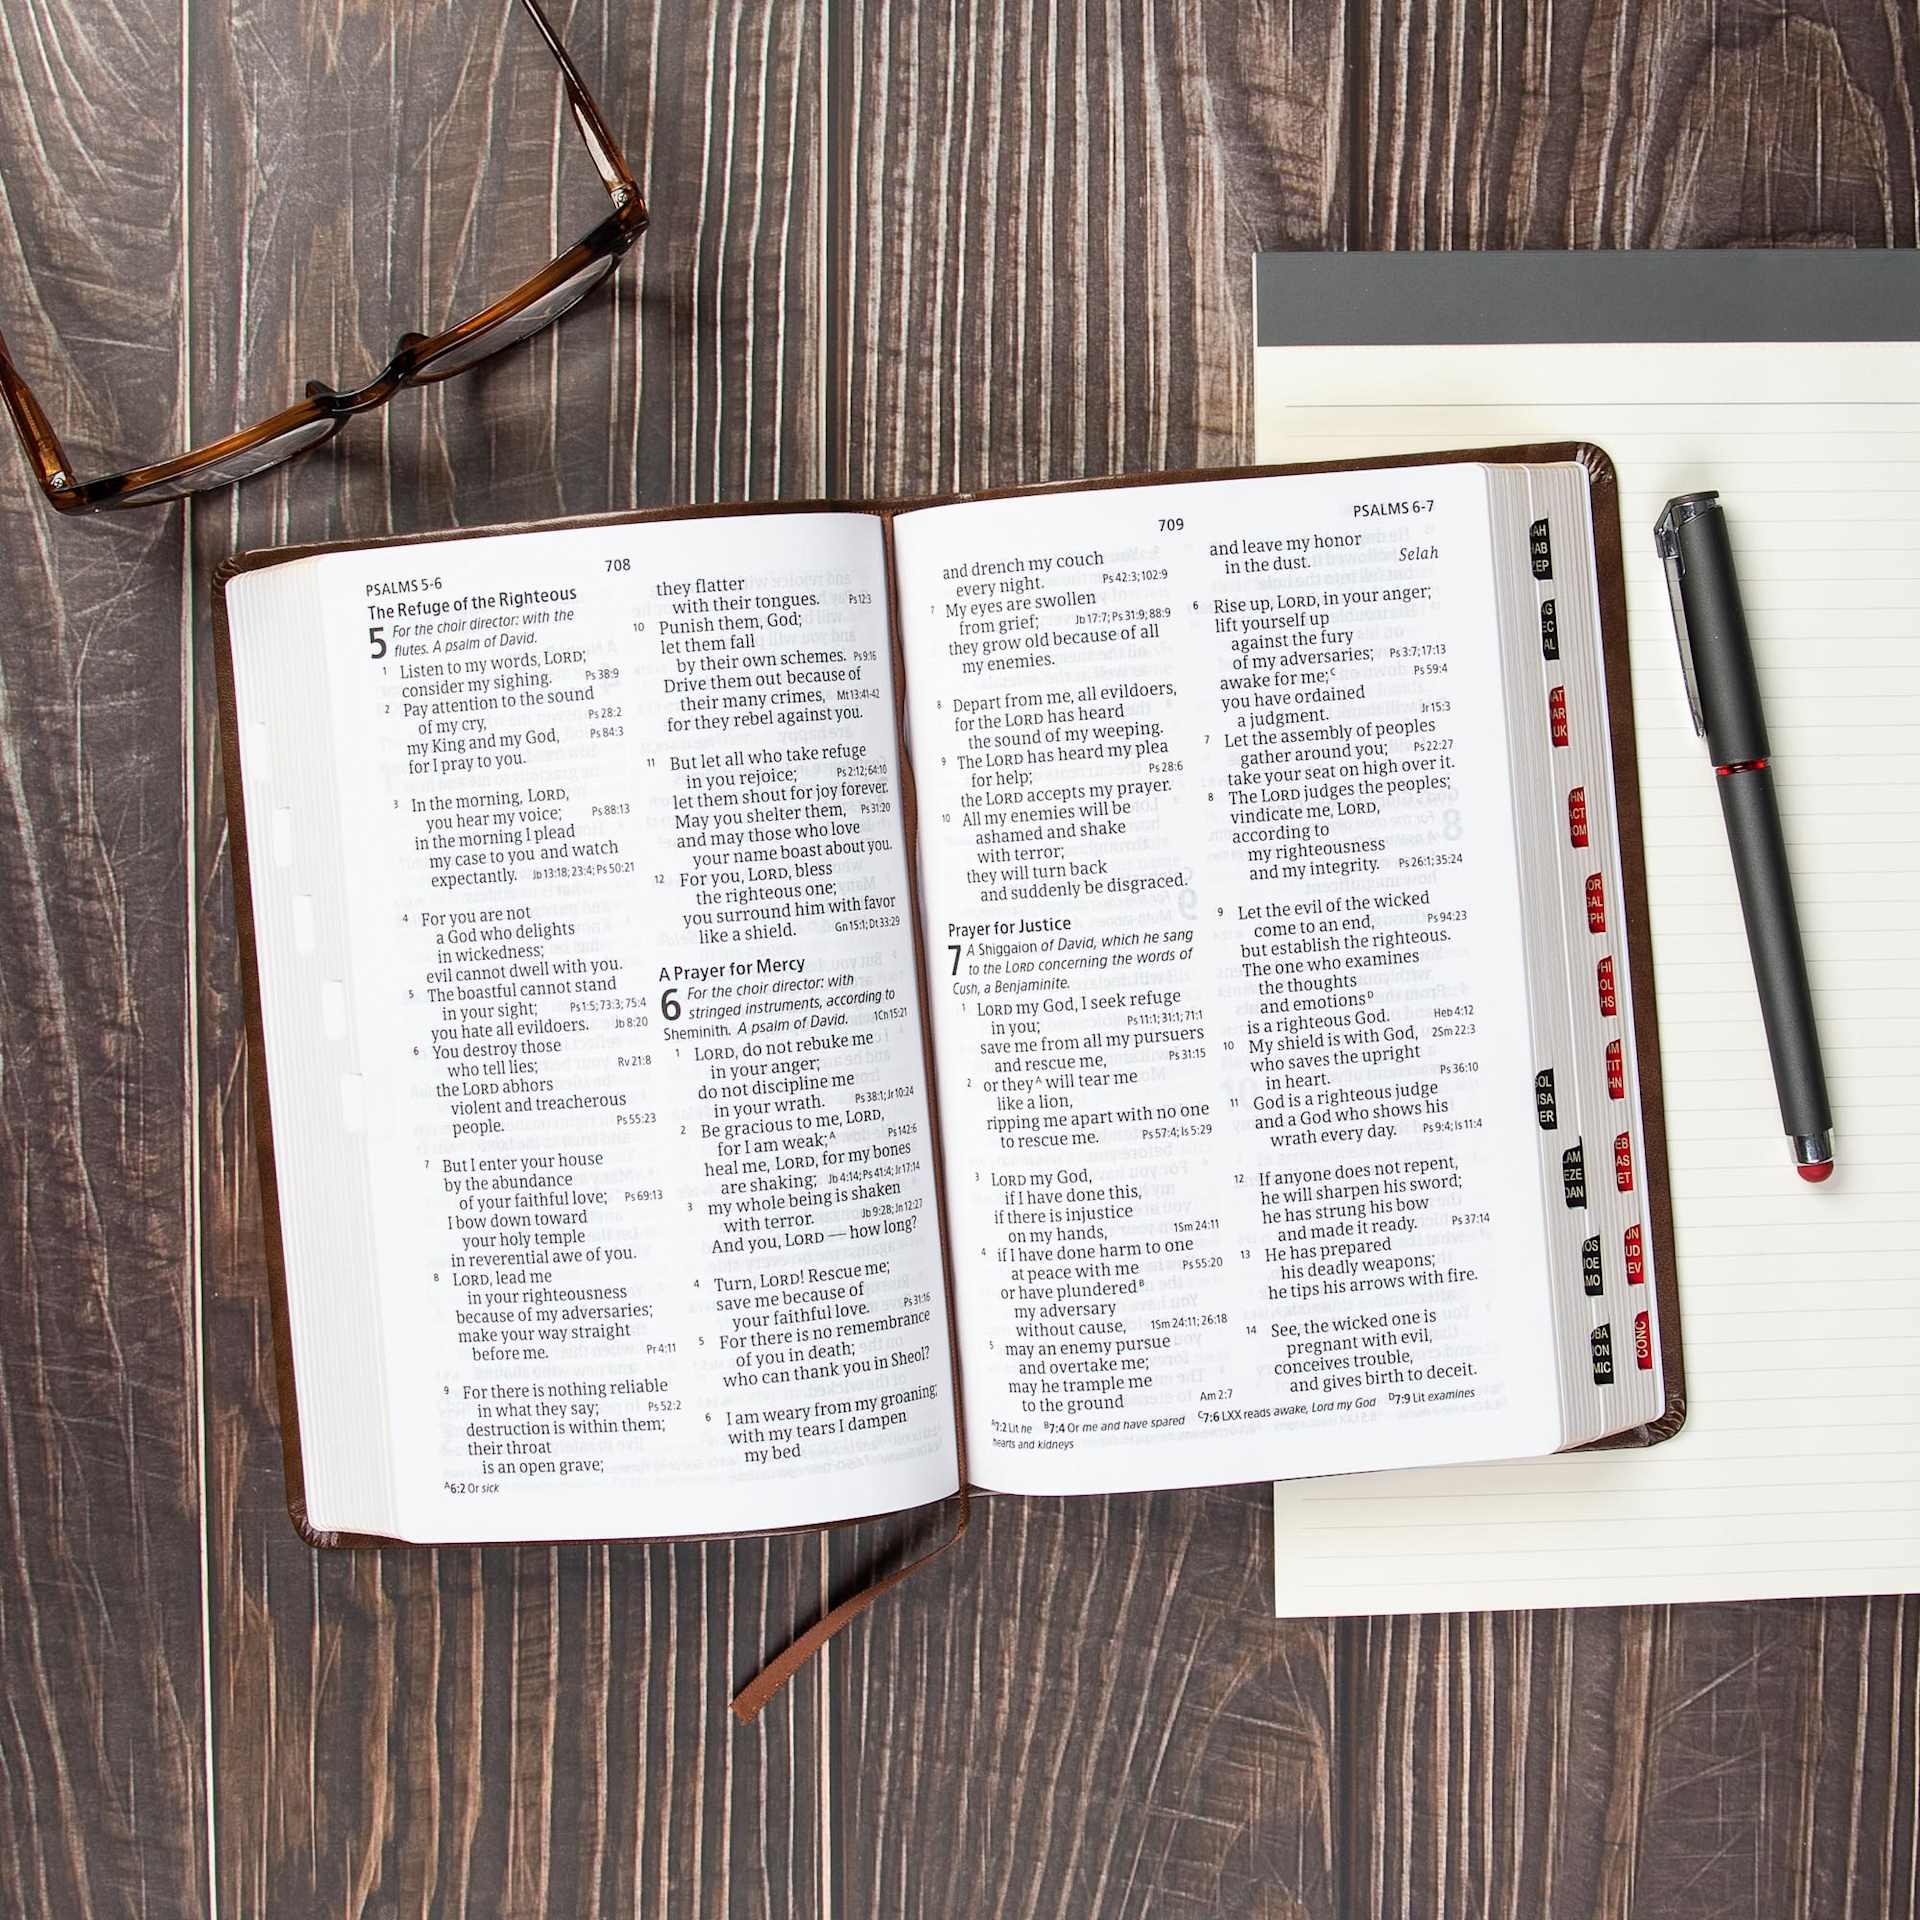 PSALMS 5-6
708
The Refuge of the Righteous
5 For the choir director: with the
flutes. A psalm of David.
1 Listen to my words, LORD;
consider my sighing. Ps 38:9
2 Pay attention to the sound
of my cry, Ps 28:2
my King and my God, Ps 84:3
for I pray to you.
3 In the morning, LORD,
you hear my voice; Ps 88:13
in the morning I plead
my case to you and watch
expectantly. Jb 13:18; 23:4; Ps 50:21
4 For you are not
a God who delights
in wickedness;
evil cannot dwell with you.
5 The boastful cannot stand
in your sight; Ps 1:5; 73:3; 75:4
you hate all evildoers. Jb 8:20
6 You destroy those
who tell lies; Rv 21:8
the LORD abhors
violent and treacherous
people. Ps 55:23
7 But I enter your house
by the abundance
of your faithful love; Ps 69:13
I bow down toward
your holy temple
in reverential awe of you.
8 LORD, lead me
in your righteousness
because of my adversaries;
make your way straight
before me. Pr 4:11
9 For there is nothing reliable
in what they say; Ps 52:2
destruction is within them;
their throat
is an open grave;
A6:2 Or sick
they flatter
with their tongues. Ps 12:3
10 Punish them, God;
let them fall
by their own schemes. Ps 9:16
Drive them out because of
their many crimes, Mt 13:41-42
for they rebel against you.
11 But let all who take refuge
in you rejoice; Ps 2:12; 64:10
let them shout for joy forever.
May you shelter them, Ps 31:20
and may those who love
your name boast about you.
12 For you, LORD, bless
the righteous one;
you surround him with favor
like a shield. Gn 15:1; Dt 33:29
A Prayer for Mercy
6 For the choir director: with
stringed instruments, according to
Sheminith. A psalm of David. 1Ch 15:21
1 LORD, do not rebuke me
in your anger;
do not discipline me
in your wrath. Ps 38:1; Jr 10:24
2 Be gracious to me, LORD,
for I am weak;A Ps 142:6
heal me, LORD, for my bones
are shaking; Jb 4:14; Ps 41:4; Jr 17:14
3 my whole being is shaken
with terror. Jb 9:28; Jn 12:27
And you, LORD — how long?
4 Turn, LORD! Rescue me;
save me because of
your faithful love. Ps 31:16
5 For there is no remembrance
of you in death;
who can thank you in Sheol?
6 I am weary from my groaning;
with my tears I dampen
my bed
709
PSALMS 6-7
and drench my couch
every night. Ps 42:3; 102:9
7 My eyes are swollen
from grief; Jb 17:7; Ps 31:9; 88:9
they grow old because of all
my enemies.
8 Depart from me, all evildoers,
for the LORD has heard
the sound of my weeping.
9 The LORD has heard my plea
for help; Ps 28:6
the LORD accepts my prayer.
10 All my enemies will be
ashamed and shake
with terror;
they will turn back
and suddenly be disgraced.
Prayer for Justice
7 A Shiggaion of David, which he sang
to the LORD concerning the words of
Cush, a Benjaminite.
1 LORD my God, I seek refuge
in you; Ps 11:1; 31:1; 71:1
save me from all my pursuers
and rescue me, Ps 31:15
2 or theyA will tear me
like a lion,
ripping me apart with no one
to rescue me. Ps 57:4; Is 5:29
3 LORD my God,
if I have done this,
if there is injustice
on my hands, 1Sm 24:11
4 if I have done harm to one
at peace with me Ps 55:20
or have plunderedB
my adversary
without cause, 1Sm 24:11; 26:18
5 may an enemy pursue
and overtake me;
may he trample me
to the ground Am 2:7
and leave my honor
in the dust. Selah
6 Rise up, LORD, in your anger;
lift yourself up
against the fury
of my adversaries; Ps 3:7; 17:13
awake for me;C Ps 59:4
you have ordained
a judgment. Jr 15:3
7 Let the assembly of peoples
gather around you; Ps 22:27
take your seat on high over it.
8 The LORD judges the peoples;
vindicate me, LORD,
according to
my righteousness
and my integrity. Ps 26:1; 35:24
9 Let the evil of the wicked
come to an end, Ps 94:23
but establish the righteous.
The one who examines
the thoughts
and emotionsD
is a righteous God. Heb 4:12
10 My shield is with God, 2Sm 22:3
who saves the upright
in heart. Ps 36:10
11 God is a righteous judge
and a God who shows his
wrath every day. Ps 9:4; Is 11:4
12 If anyone does not repent,
he will sharpen his sword;
he has strung his bow
and made it ready. Ps 37:14
13 He has prepared
his deadly weapons;
he tips his arrows with fire.
14 See, the wicked one is
pregnant with evil,
conceives trouble,
and gives birth to deceit.
A7:2 Lit he B7:4 Or me and have spared C7:6 LXX reads awake, Lord my God D7:9 Lit examines
hearts and kidneys
LAM
EZE
DAN
CONC